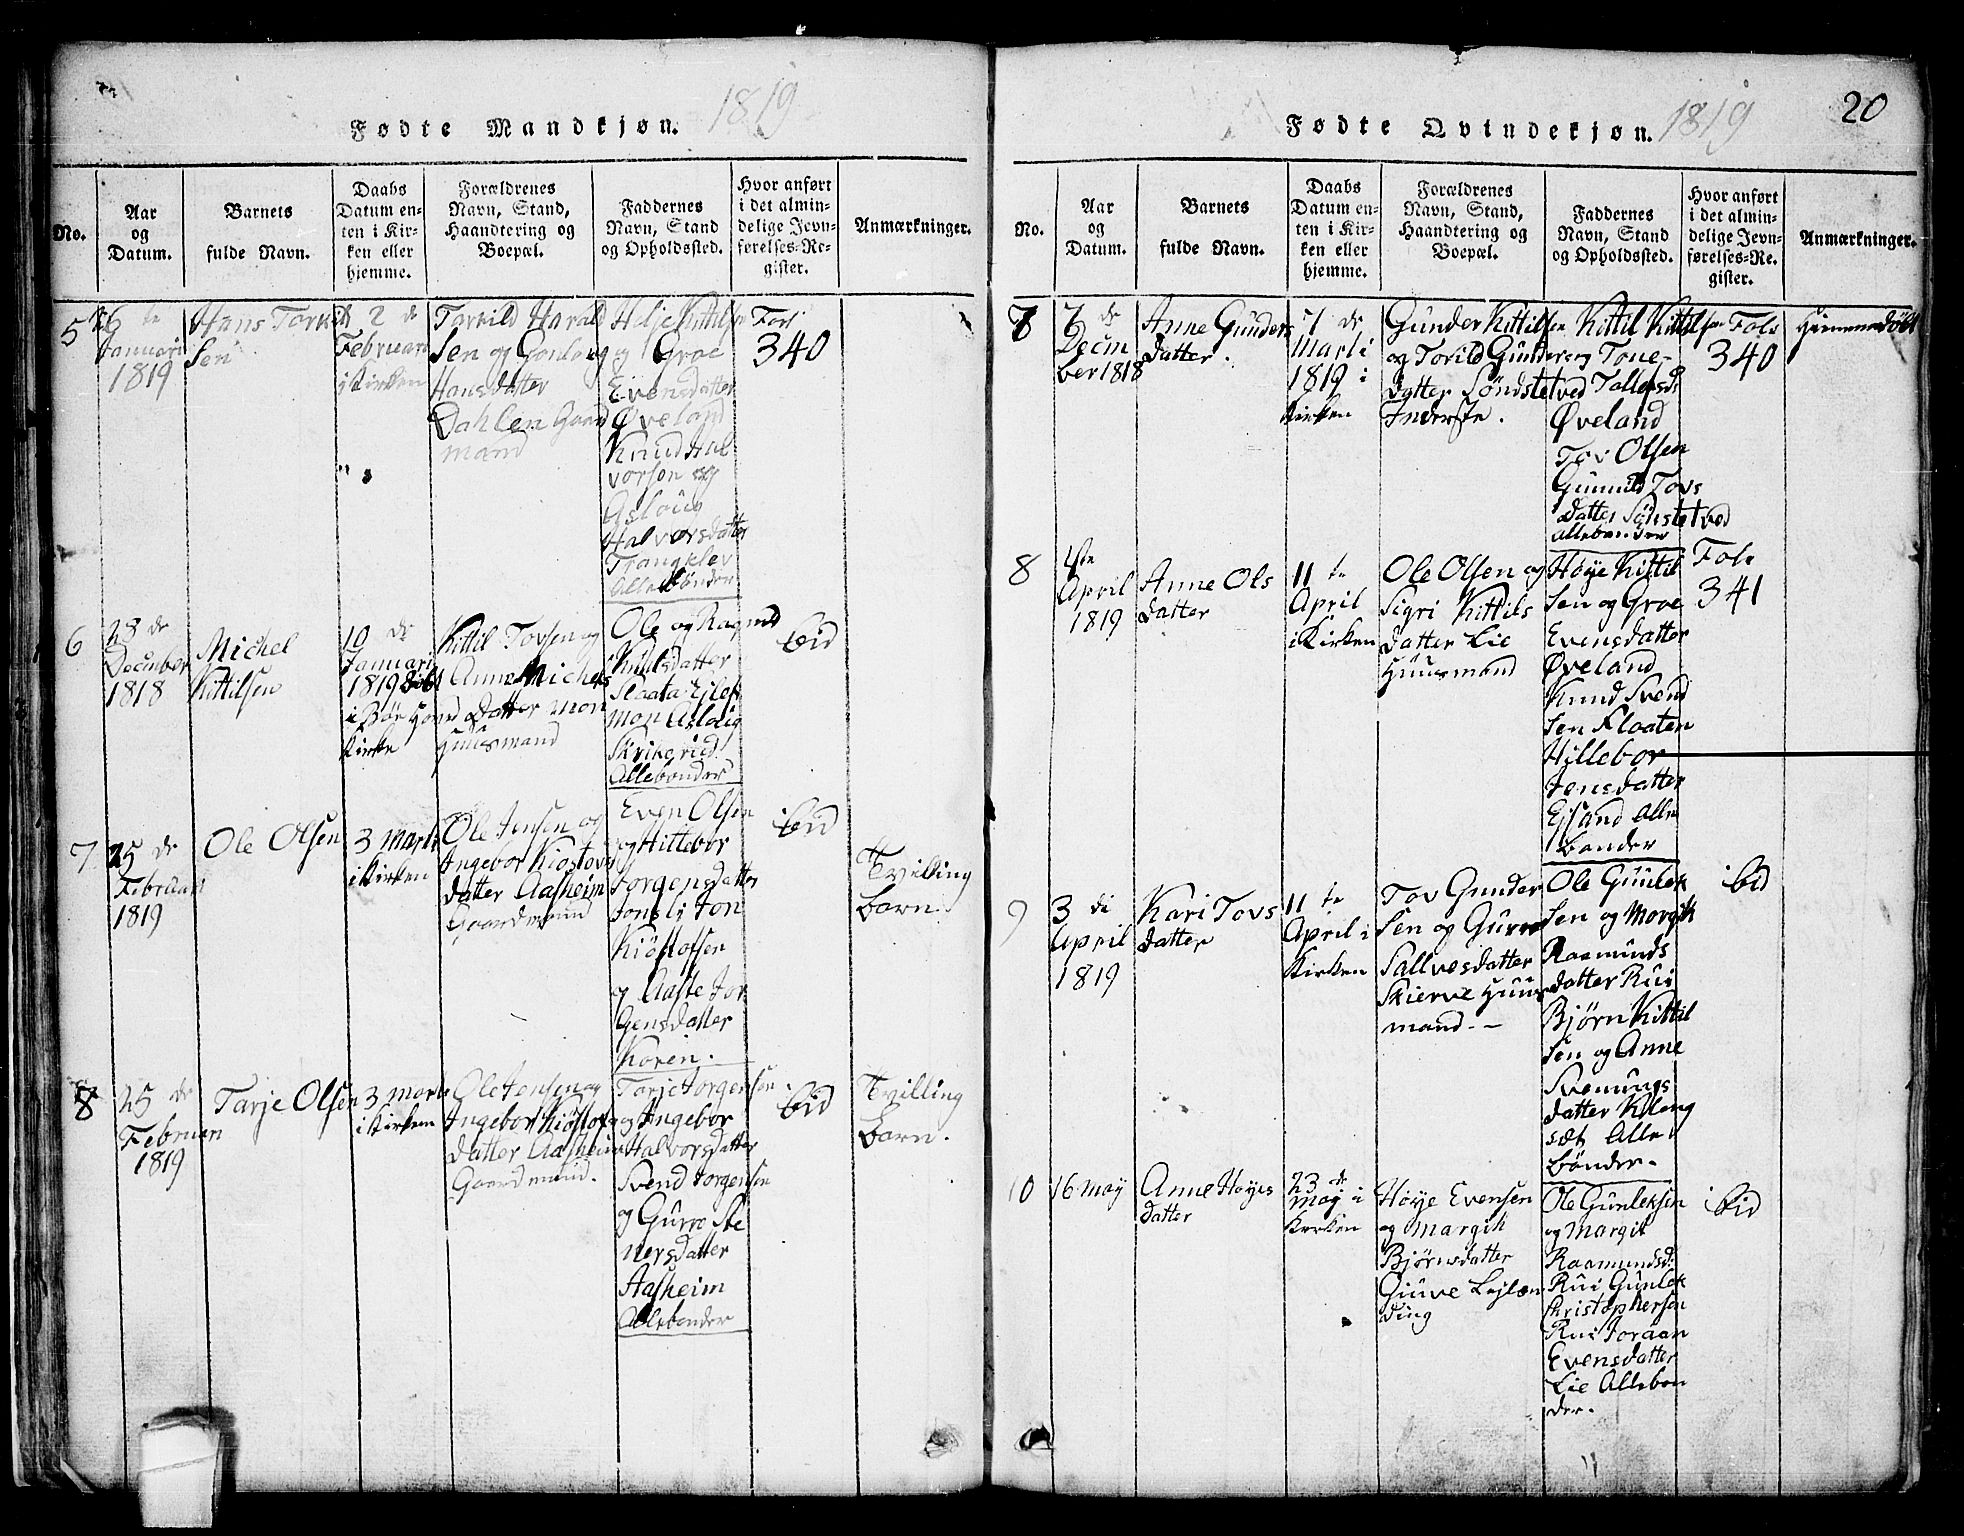 Fødte Mandkjøn. 1819
No.
Aar
og
Datum.
Barnets
fulde Navn.
Daabs
Datum en-
ten i Kir-
ken eller
hjemme.
Forældrenes
Navn, Stand,
Haandtering og
Boepæl.
Faddernes
Navn, Stand
og Opholdssted.
Hvor anført
i det almin-
delige Jevn-
førelses-Re-
gister.
Anmærkninger.
5
26 te
Januari
1819
Hans Torkild
Sen
d 2 de
Februari
i Kirken
Torkild Harald
Sen og Gonlaug
Hansdatter
Dahlen Gaard
mand
Helje Kittilsen
og Groe
Evensdatter
Øveland
Knud Hal
vorsen og
Asloug
Halvorsdatter
Trangklev
Alle bønder
Fol
340
6
28 de
December
1818
Michel
Kittilsen
10 de
Januari
1819
i Bøe Hoved
Kirke
Kittil Tovsen og
Anne Michels
Datter Mon
Huusmand
Ole og Ragnild
Knudsdatter
Slaata Ejlef
Mon Aslaug
Skrikerud
Alle bønder
ibid
7
25 de
Februari
1819
Ole Olsen
3 Marti
i Kirken
Ole Jensen og
Ingebor Kiøstovs
datter Aasheim
Gaardmand
Even Olsen
og Hillebor
Jorgensdatter
Jonsli Jon
Kiøstofsen
og Aaste Jor
Gensdatter
Koren.
ibid
Tvilling
barn.
8
25 de
Februari
1819
Tarje Olsen
3 Marti
i Kirken
Ole Jensen og
Ingebor Kiøstofs
datter Aasheim
Gaardmand.
Tarje Jorgensen
og Ingebor
Halvorsdatter
Svend Jorgensen
og Gurro Ste
nersdatter
Aasheim
Alle bonder
ibid
Tvilling
barn.
Fødte Qvindekjøn. 1819
20
No.
Aar
og
Datum.
Barnets
fulde Navn.
Daabs
Datum en-
ten i Kir-
ken eller
hjemme.
Forældrenes
Navn, Stand,
Haandtering og
Boepæl.
Faddernes
Navn, Stand
og Opholdssted.
Hvor anført
i det almin-
delige Jevn-
førelses-Re-
gister.
Anmærkninger.
7
7 de
Decem
ber 1818
Anne Gunders
datter.
7 de
Marti
1819 i
Kirken
Gunder Kittilsen
og Torild Gunders
datter Søndstetved
Inderste.
Kittil Kittilsen
og Tone
Tollefsd
Øveland
Tov Olsen
Gunnild Tovs
Datter Sønstetved
alle bønder
Fol.
340
Hiemmedøbt
8
1ste
April
1819
Anne Ols
datter
11 te
April
i Kirken
Ole Olsen og
Sigri Kittils
datter Lie
Huusmand
Høye Kittil
sen og Groe
Evensdatter
Øveland
Knud Svend
sen Flaaten
Hillebor
Jensdatter
Ejsand Alle
bonder
Fol.
341
9
3 di
April
1819
Kari Tovs
datter
11 te
April i
Kirken
Tov Gunder
Sen og Gurro
Sallvesdatter
Skierve Huus
mand. -
Ole Gunlek
sen og Morgit
Raamunds
datter Rui
Bjørn Kittil
sen og Anne
Svenungs
datter Kleng
sæt Alle
bønder.
ibid
10
16 May
Anne Høyes
datter
23 de
May i
Kirken
Høye Evensen
og Margit
Bjørnsdatter
Giuve Lejlæn
ding
Ole Gunleksen
og Margit
Raamundsd.
Rui Gunlek
Kristophersen
Rui Joraan
Evensdatter
Lie Alle bon
der.
ibid